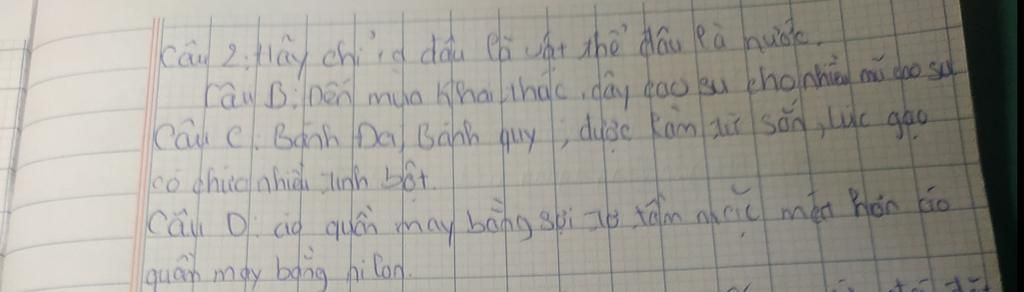 Câu 2: Hãy chỉ đâu là vật thể đâu là nước.
Câu B: Đến mùa Khai thác, cây cao su cho nhiều mủ cao su
Câu C: Bánh Đa, Bánh quy, được làm từ sắn, lúc gạo
có chứa nhiều tinh bột.
Câu D: áo quần may bằng sợi tơ tằm mặc mát hơn áo
quần may bằng nilon.